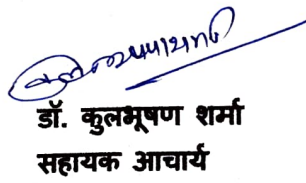 डॉ. कुलभूषण शर्मा
सहायक आचार्य